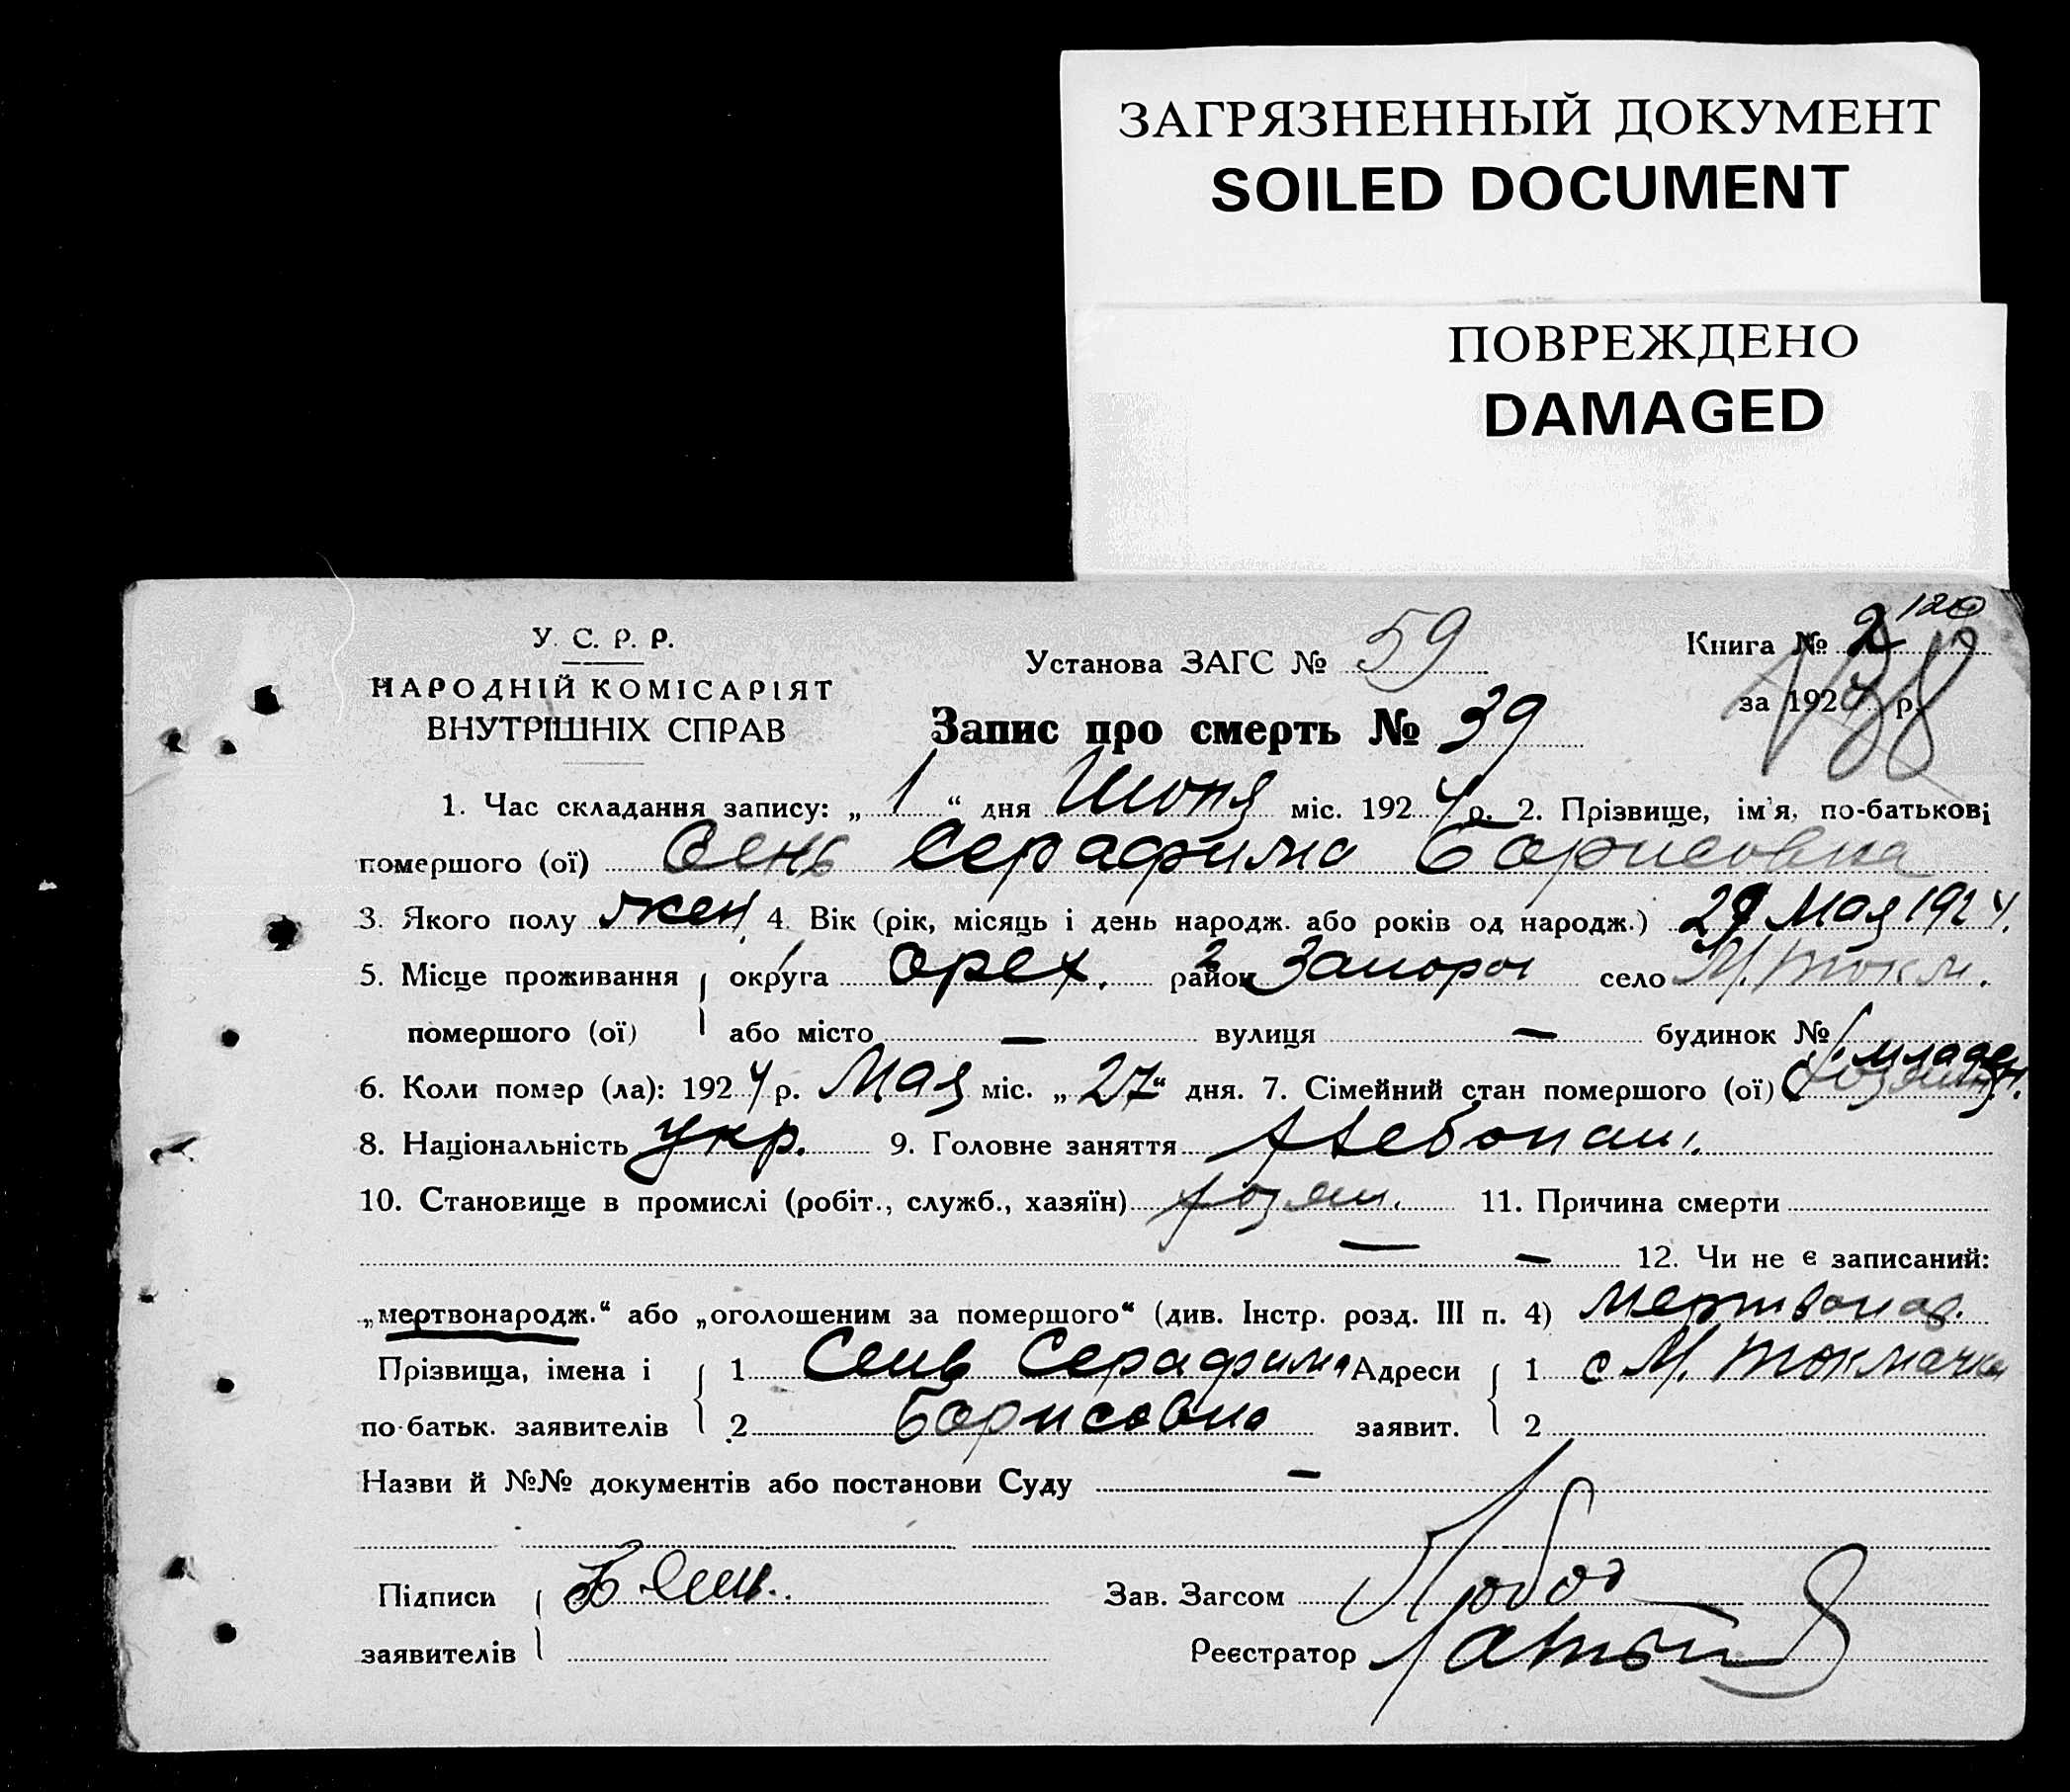 ЗАГРЯЗНЕННЫЙ ДОКУМЕНТ
SOILED DOCUMENT
ПОВРЕЖДЕНО
DAMAGED
У. С. Р. Р.
НАРОДНІЙ КОМІСАРІЯТ
ВНУТРІШНІХ СПРАВ
Установа ЗАГС № 59
Запис про смерть № 39
Книга № 2 120
за 1924 р. 138
1. Час складання запису: „ 1 “ дня Июня міс. 1924 р. 2. Прізвище, ім'я, по-батькові
помершого (ої) Сень Серафима Борисовна
3. Якого полу жен. 4. Вік (рік, місяць і день народж. або років од народж.) Мая 1924.
5. Місце проживання округа Орех. район Запорож село М. Токм.
помершого (ої) або місто — вулиця — будинок №
6. Коли помер (ла): 1924 р. Мая міс. „ 27 “ дня. 7. Сімейний стан помершого (ої) младен.
8. Національність укр. 9. Головне заняття хлебопаш.
10. Становище в промислі (робіт., служб., хазяїн) хозяин. 11. Причина смерти
— — 12. Чи не є записаний:
„мертвонародж.“ або „оголошеним за помершого“ (див. Інстр. розд. III п. 4) мертвонар.
Прізвища, імена і 1 Сень Серафима Адреси 1 с М. Токмачка
по-батьк. заявителів 2 Борисовна заявит. 2
Назви й №№ документів або постанови Суду —
Підписи Б Сень.
Зав. Загсом
заявителів
Реєстратор